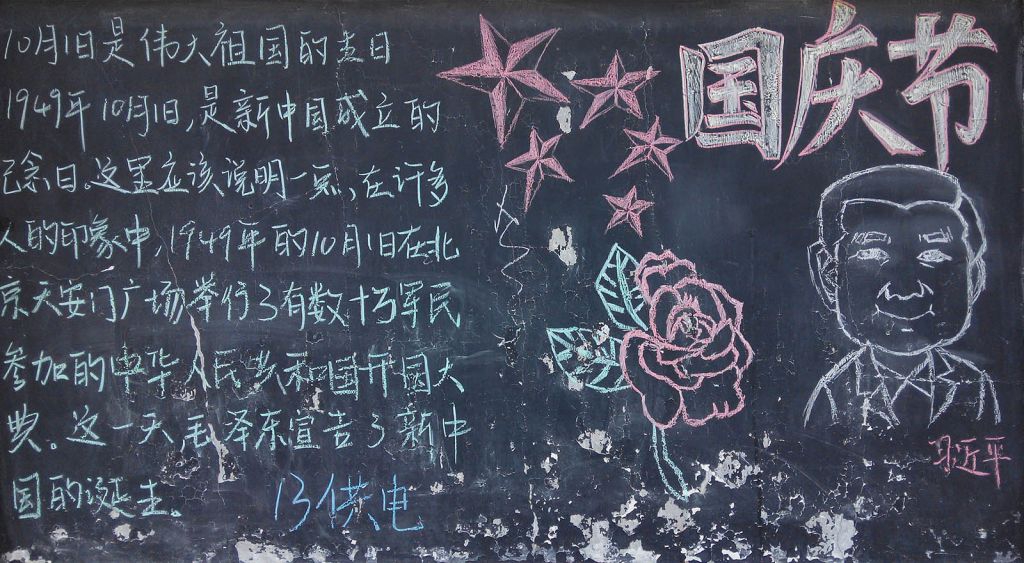 10月1日是伟大祖国的生日
1949年10月1日,是新中国成立的
纪念日。这里应该说明一点,在许多
人的印象中,1949年的10月1日在北
京天安门广场举行了有数十万军民
参加的中华人民共和国开国大
典。这一天毛泽东宣告了新中
国的诞生。
13供电
国庆节
习近平